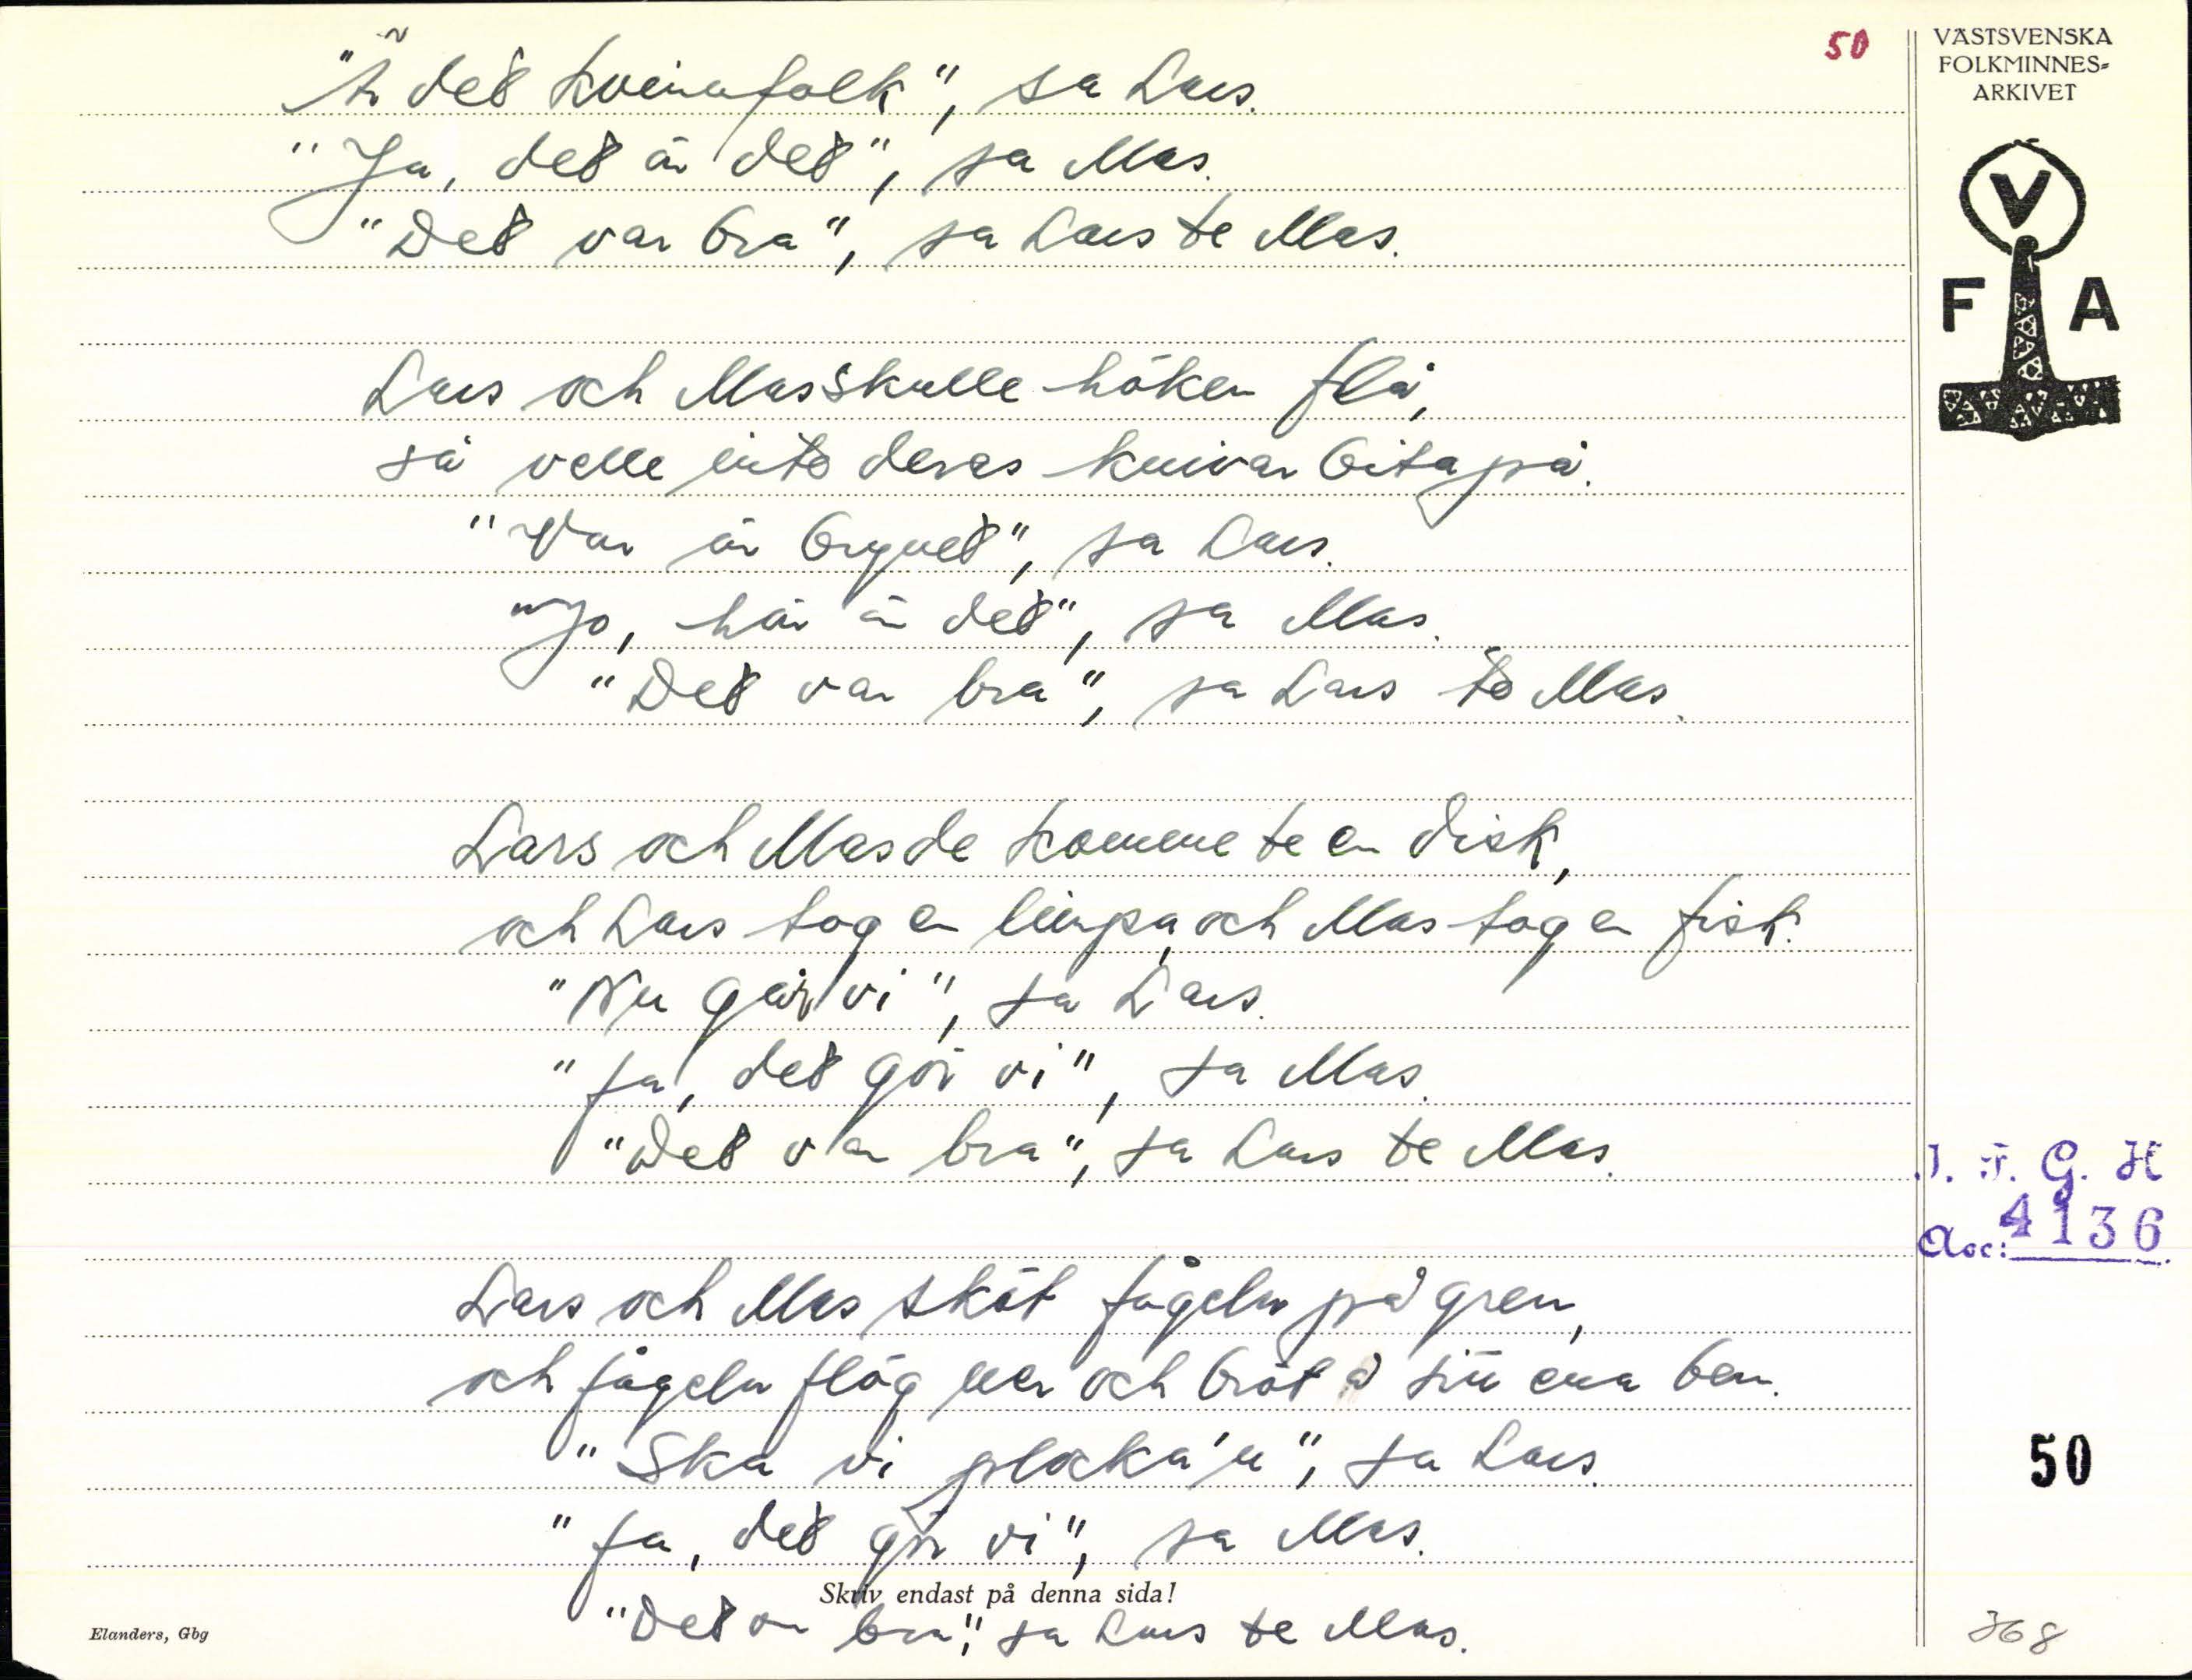 50
"Är det kvinnfolk", sa Lars.
"Ja, det är det", sa Mas.
"Det var bra", sa Lars te Mas.
Lars och Mas skulle höken flå,
så velle inte deras knivar bita på.
"Var är brynet", sa Lars.
"Jo, här är det", sa Mas.
"Det var bra", sa Lars te Mas.
Lars och Mas de komme te en disk,
och Lars tog en limpa, och Mas tog en fisk.
"Nu går vi", sa Lars.
"Ja, det gör vi", sa Mas.
"Det var bra", sa Lars te Mas.
Lars och Mas sköt fågeln på gren,
och fågeln flög ner och bröt å sitt ena ben.
"Ska vi plocka'n", sa Lars.
"Ja, det gör vi", sa Mas.
Skriv endast på denna sida!
"Det var bra", sa Lars te Mas.
Elanders, Gbg
VÄSTSVENSKA
FOLKMINNES=
ARKIVET
V
F A
I. F. G. H
Acc: 4136
50
368